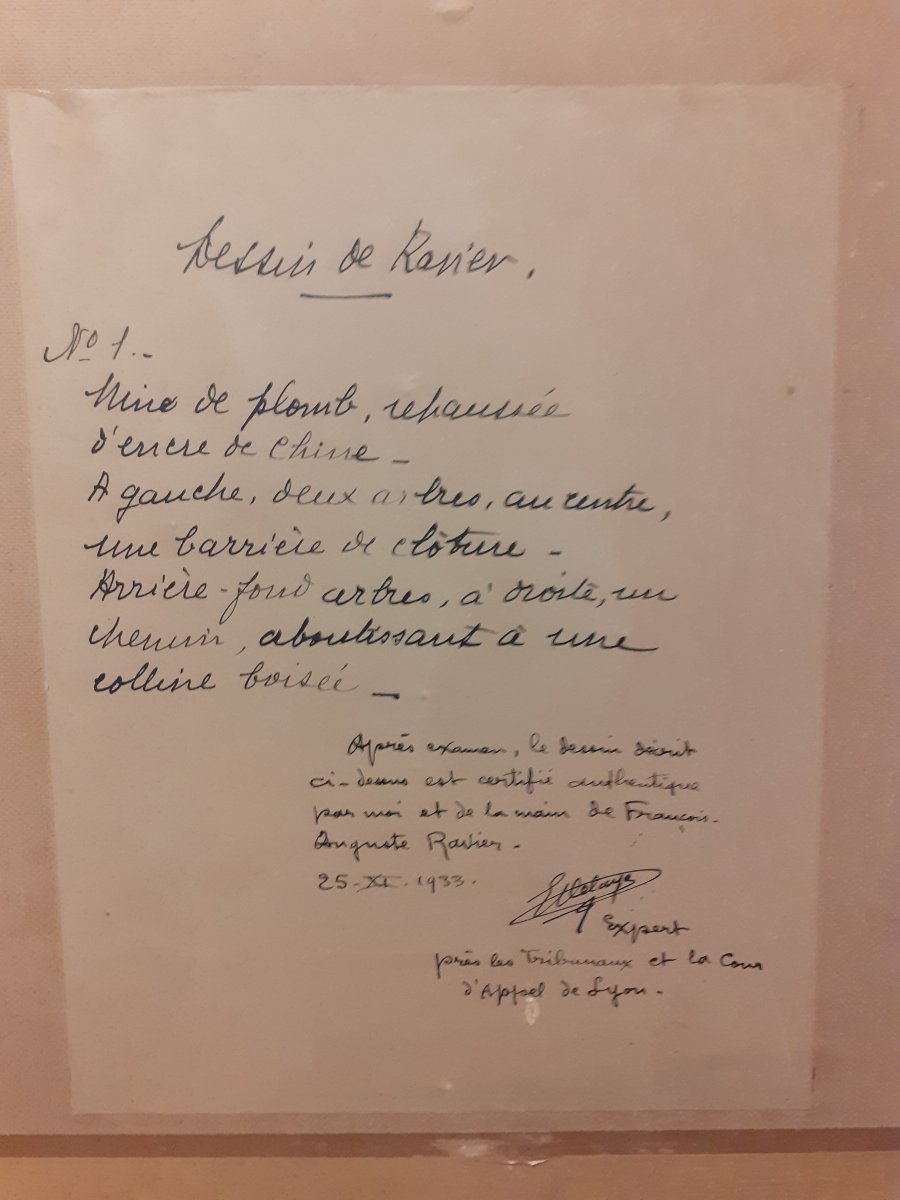 Dessin de Ravier.
No 1.-
Mine de plomb, rehaussée
d'encre de Chine -
A gauche, deux arbres, au centre,
une barrière de clôture -
Arrière-fond arbres, à droite, un
chemin, aboutissant à une
colline boisée -
Après examen, le dessin décrit
ci-dessus est certifié authentique
par moi et de la main de François-
Auguste Ravier -
25-XI-1933.
Expert
près les Tribunaux et la Cour
d'Appel de Lyon -